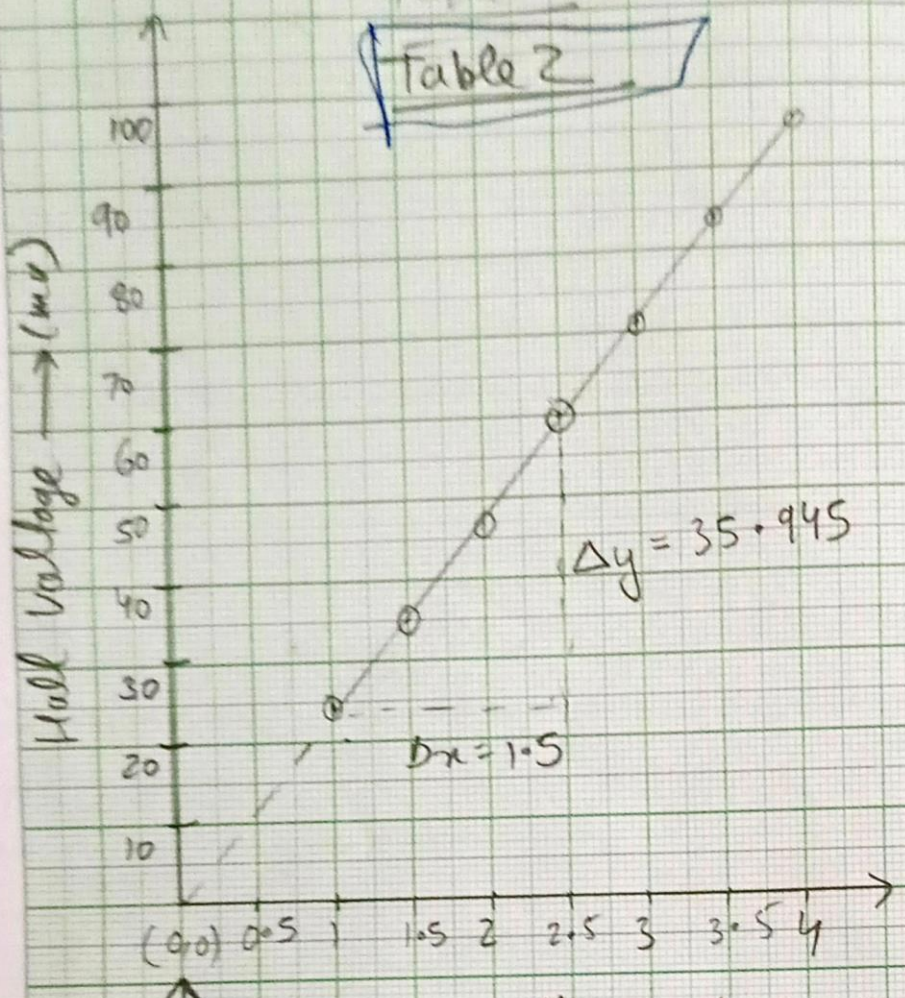 Table 2
Hall Voltage → (mv)
100
90
80
70
60
50
40
30
20
10
Δy = 35.945
Dx = 1.5
(0,0) 0.5 1 1.5 2 2.5 3 3.5 4